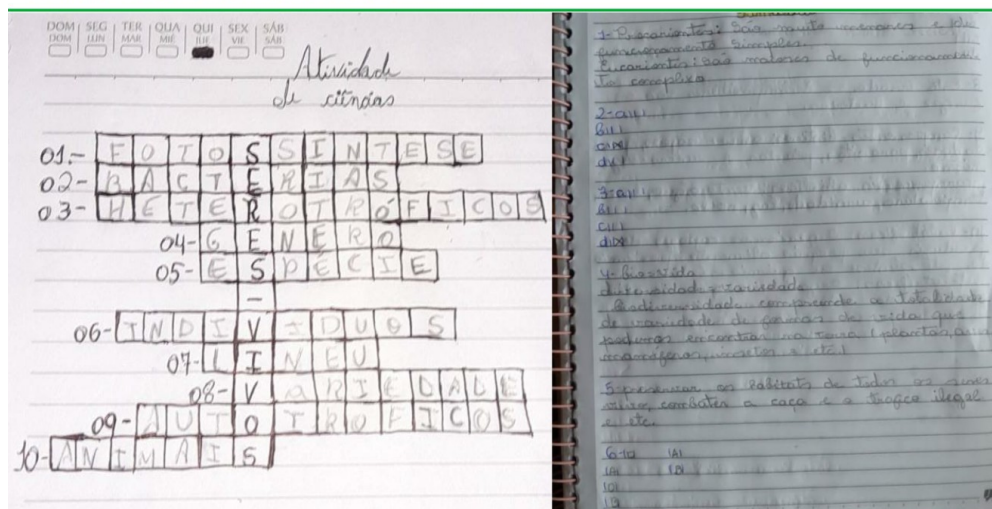 DOM SEG TER QUA QUI SEX SÁB
DOM LUN MAR MIÉ JUE VIE SÁB
Atividade
de ciências
01.- FOTOSSINTESE
02- BACTERIAS
03- HETEROTRÓFICOS
04- GENERO
05- ESPÉCIE
-
06- INDIVIDUOS
07- LINEU
08- VARIEDADE
09- AUTOTROFICOS
10- ANIMAIS
1- Procariontes: São muito menores e de
funcionamento simples.
Eucariontes: São maiores de funcionamen
to complexo
2-a( )
B( )
C(X)
d( )
3-a( )
B( )
C( )
d(X)
4- Bio=vida
diversidade= variedade
Biodiversidade compreende a totalidade
de variedade de formas de vida que
podemos encontrar na terra (plantas, aves
mamíferos, insetos e etc.)
5- preservar os hábitats de todos os seres
vivos, combater a caça e o trafico ilegal
e etc.
6- (A)
(A) (B)